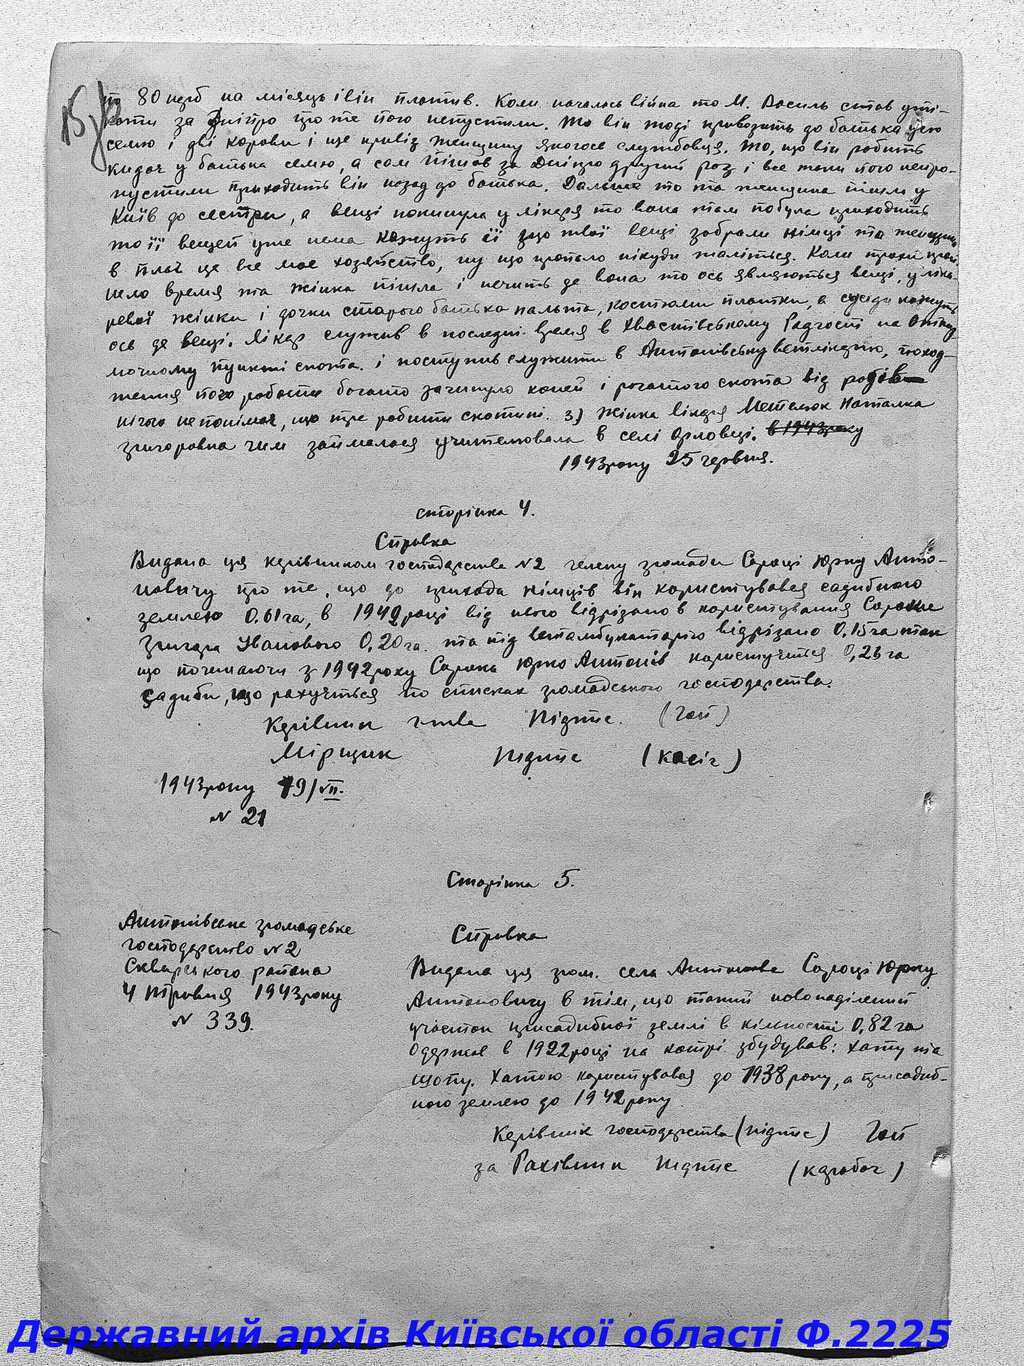 по 80 карб на місяць і він платив. Коли началась війна то М. Василь став уті-
кати за Дніпро про те його непустили. То він тоді привозить до батька свою
семю і дві корови і ще привіз женщину якогось службовця. То, що він робить
кидає у батька семю, а сам пішов за Дніпро другий раз і все таки його непро-
пустили приходить він назад до батька. Дальше то та женщина пішла у
Київ до сестри, а вещі покинула у лікаря то вона там побула приходить
то її вещей уже нема кажуть її що твої вещі забрали німці та женщина
в плач це все моє хозяйство, ну що пропало нікуди жаліться. Коли трохи
время та жінка пішла і де вона то ось являються вещі, у ліка-
ревої жінки і дочки старого батька пальта, костюми платки, а сусіди кажуть
ось де вещі. Лікар служив в последнє время в Хвастівському Радгоспі на
пункті скота. і поступив служити в Антонівську ветлікарню,
його работи богато загинуло коней і рогатого скота від
нічого непонімає, що тре робити скотині. 3) Жінка лікаря Метелюк Наталка
Григоровна чим займалася учителювала в селі Орловці. в 1943 року
1943 року 25 червня.
сторінка 4.
Справка
Видана ця керівником господарства №2 члену громади Сороці Юрку Анто-
новичу про те, що до прихода німців він користувався садибною
землею 0.61 га, в 1942 році від нього відрізано в користування Сороки
Григора Іванового 0,20 га. та під відрізано 0,15 га так
що починаючи з 1942 року Сорока Юрко Антонів користується 0,26 га
садиби, що рахується по списках громадського господарства.
Керівник г-тва Підпис. (Гай)
Мірщик підпис (косіг)
1943 року 19/VII.
№ 21
Сторінка 5.
Антонівське громадське
господарство №2
Сквирського района
4 травня 1943 року
№ 339.
Справка
Видана ця гром. села Антонова Сороці Юрку
Антоновичу в тім, що такий новонаділений
участок присадибної землі в кількості 0,82 га
Одержав в 1922 році на котрі збудував: хату та
Хатою користувався до 1938 року, а присадиб-
ною землею до 1942 року
Керівник господарства (підпис) Гай
за Рахівник підпис
Державний архів Київської області Ф.2225